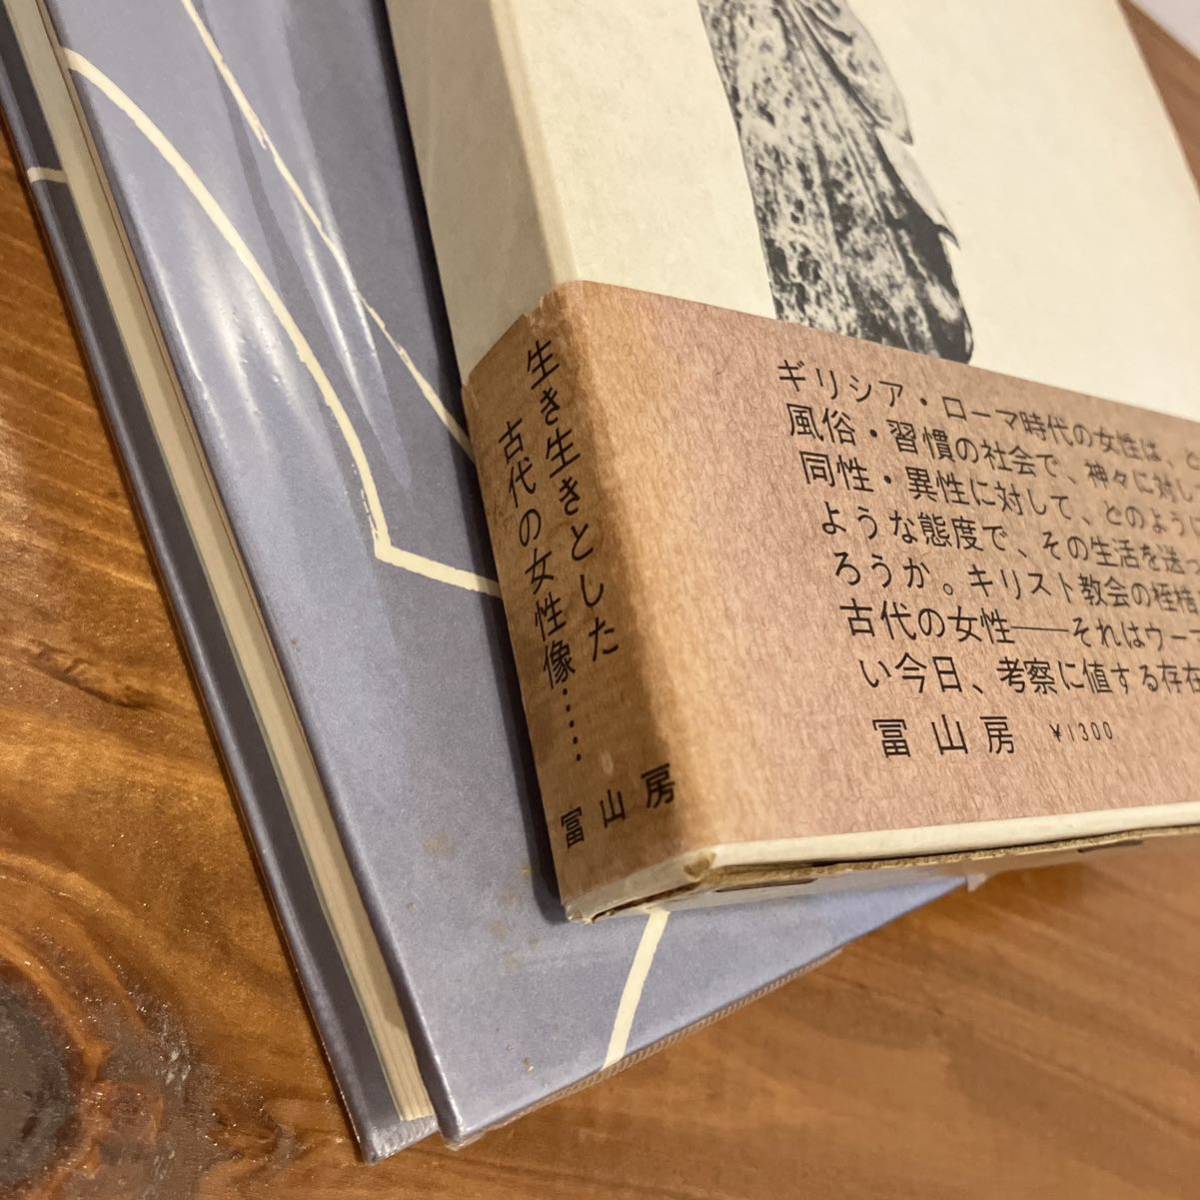 生き生きとした
古代の女性像……
冨山房
ギリシア・ローマ時代の女性は、ど
風俗・習慣の社会で、神々に対し
同性・異性に対して、どのように
ような態度で、その生活を送っ
ろうか。キリスト教会の桎梏
古代の女性──それはウー
い今日、考察に値する存在
冨山房 ¥1300